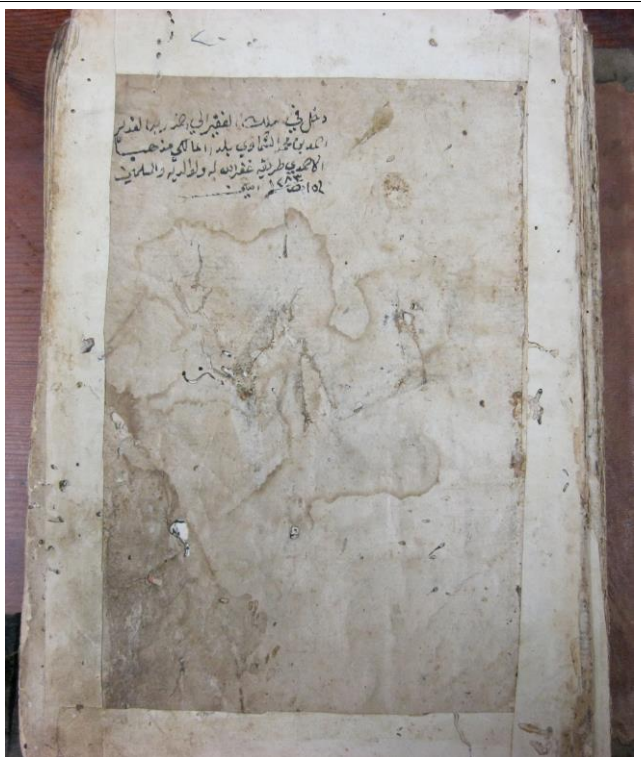 دخل في ملك الفقير الي الله ربه القدير
احمد بن محمد الشماوي بلدا المالكي مذهبا
الاحمدي طريقة غفر الله له ولوالديه والمسلمين
امين